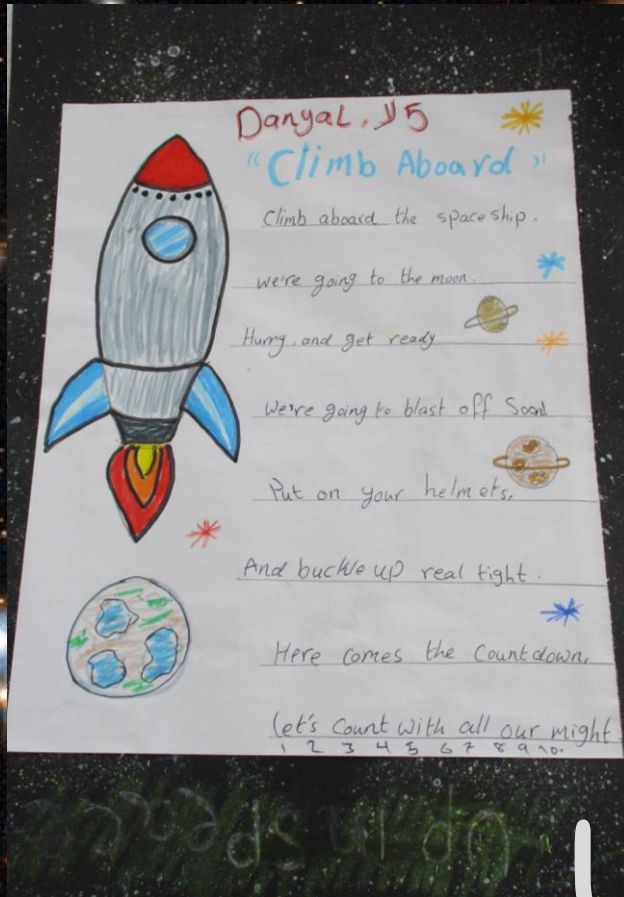 Danyal, Y5
"Climb Aboard"
Climb aboard the space ship.
we're going to the moon.
Hurry, and get ready
we're going to blast off Soon!
Put on your helmets,
And buckle up real tight.
Here comes the countdown,
Let's count with all our might
1 2 3 4 5 6 7 8 9 10.
Up in space